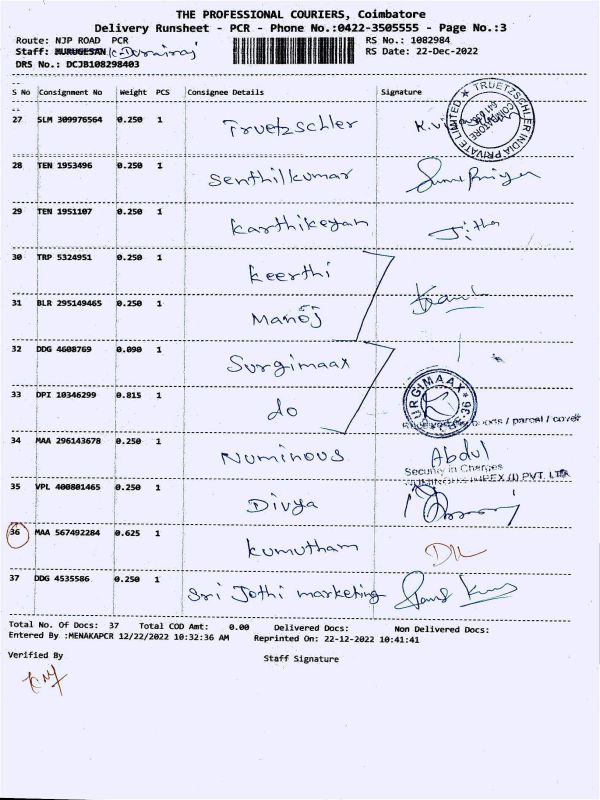 THE PROFESSIONAL COURIERS, Coimbatore
Delivery Runsheet - PCR - Phone No.:0422-3505555 - Page No.:3
Route: NJP ROAD PCR
RS No.: 1082984
Staff: MURUGESAN C. Durairaj
RS Date: 22-Dec-2022
DRS No.: DCJB108298403
S No Consignment No Weight PCS Consignee Details Signature
27 SLM 309976564 0.250 1 Truetzschler
TRUETZSCHLER INDIA PRIVATE LIMITED
COIMBATORE
28 TEN 1953496 0.250 1 Senthilkumar
29 TEN 1951107 0.250 1 Karthikeyan Jitha
30 TRP 5324951 0.250 1 Keerthi
31 BLR 295149465 0.250 1 Manoj
32 DDG 4608769 0.090 1 Surgimaax
33 DPI 10346299 0.815 1 do
SURGIMAAX
goods / parcel / cover
34 MAA 296143678 0.250 1 Numinous Abdul
Security in Charges
IMPEX (I) PVT. LTD
35 VPL 400801465 0.250 1 Divya
36 MAA 567492284 0.625 1 Kumutham
37 DDG 4535586 0.250 1 Sri Jothi marketing
Total No. Of Docs: 37 Total COD Amt: 0.00 Delivered Docs: Non Delivered Docs:
Entered By :MENAKAPCR 12/22/2022 10:32:36 AM Reprinted On: 22-12-2022 10:41:41
Verified By
Staff Signature